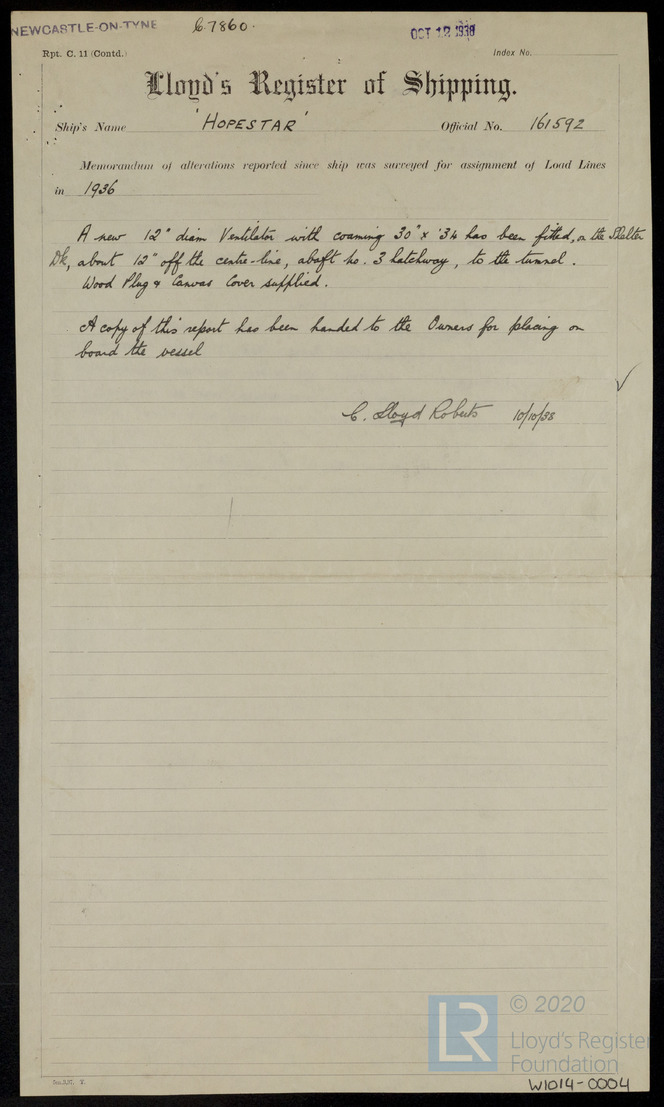 NEWCASTLE-ON-TYNE C.7860. OCT 12 1938
Rpt. C. 11 (Contd.) Index No.
Lloyd's Register of Shipping.
Ship's Name 'HOPESTAR' Official No. 161592
Memorandum of alterations reported since ship was surveyed for assignment of Load Lines
in 1936
A new 12" diam Ventilator with coaming 30" x .34 has been fitted, on the Shelter
Dk, about 12" off the centre-line, abaft No. 3 hatchway, to the tunnel.
Wood Plug & Canvas Cover supplied.
A copy of this report has been handed to the Owners for placing on
board the vessel
C. Lloyd Roberts 10/10/38
© 2020
LR
Lloyd's Register
Foundation
W1014-0004